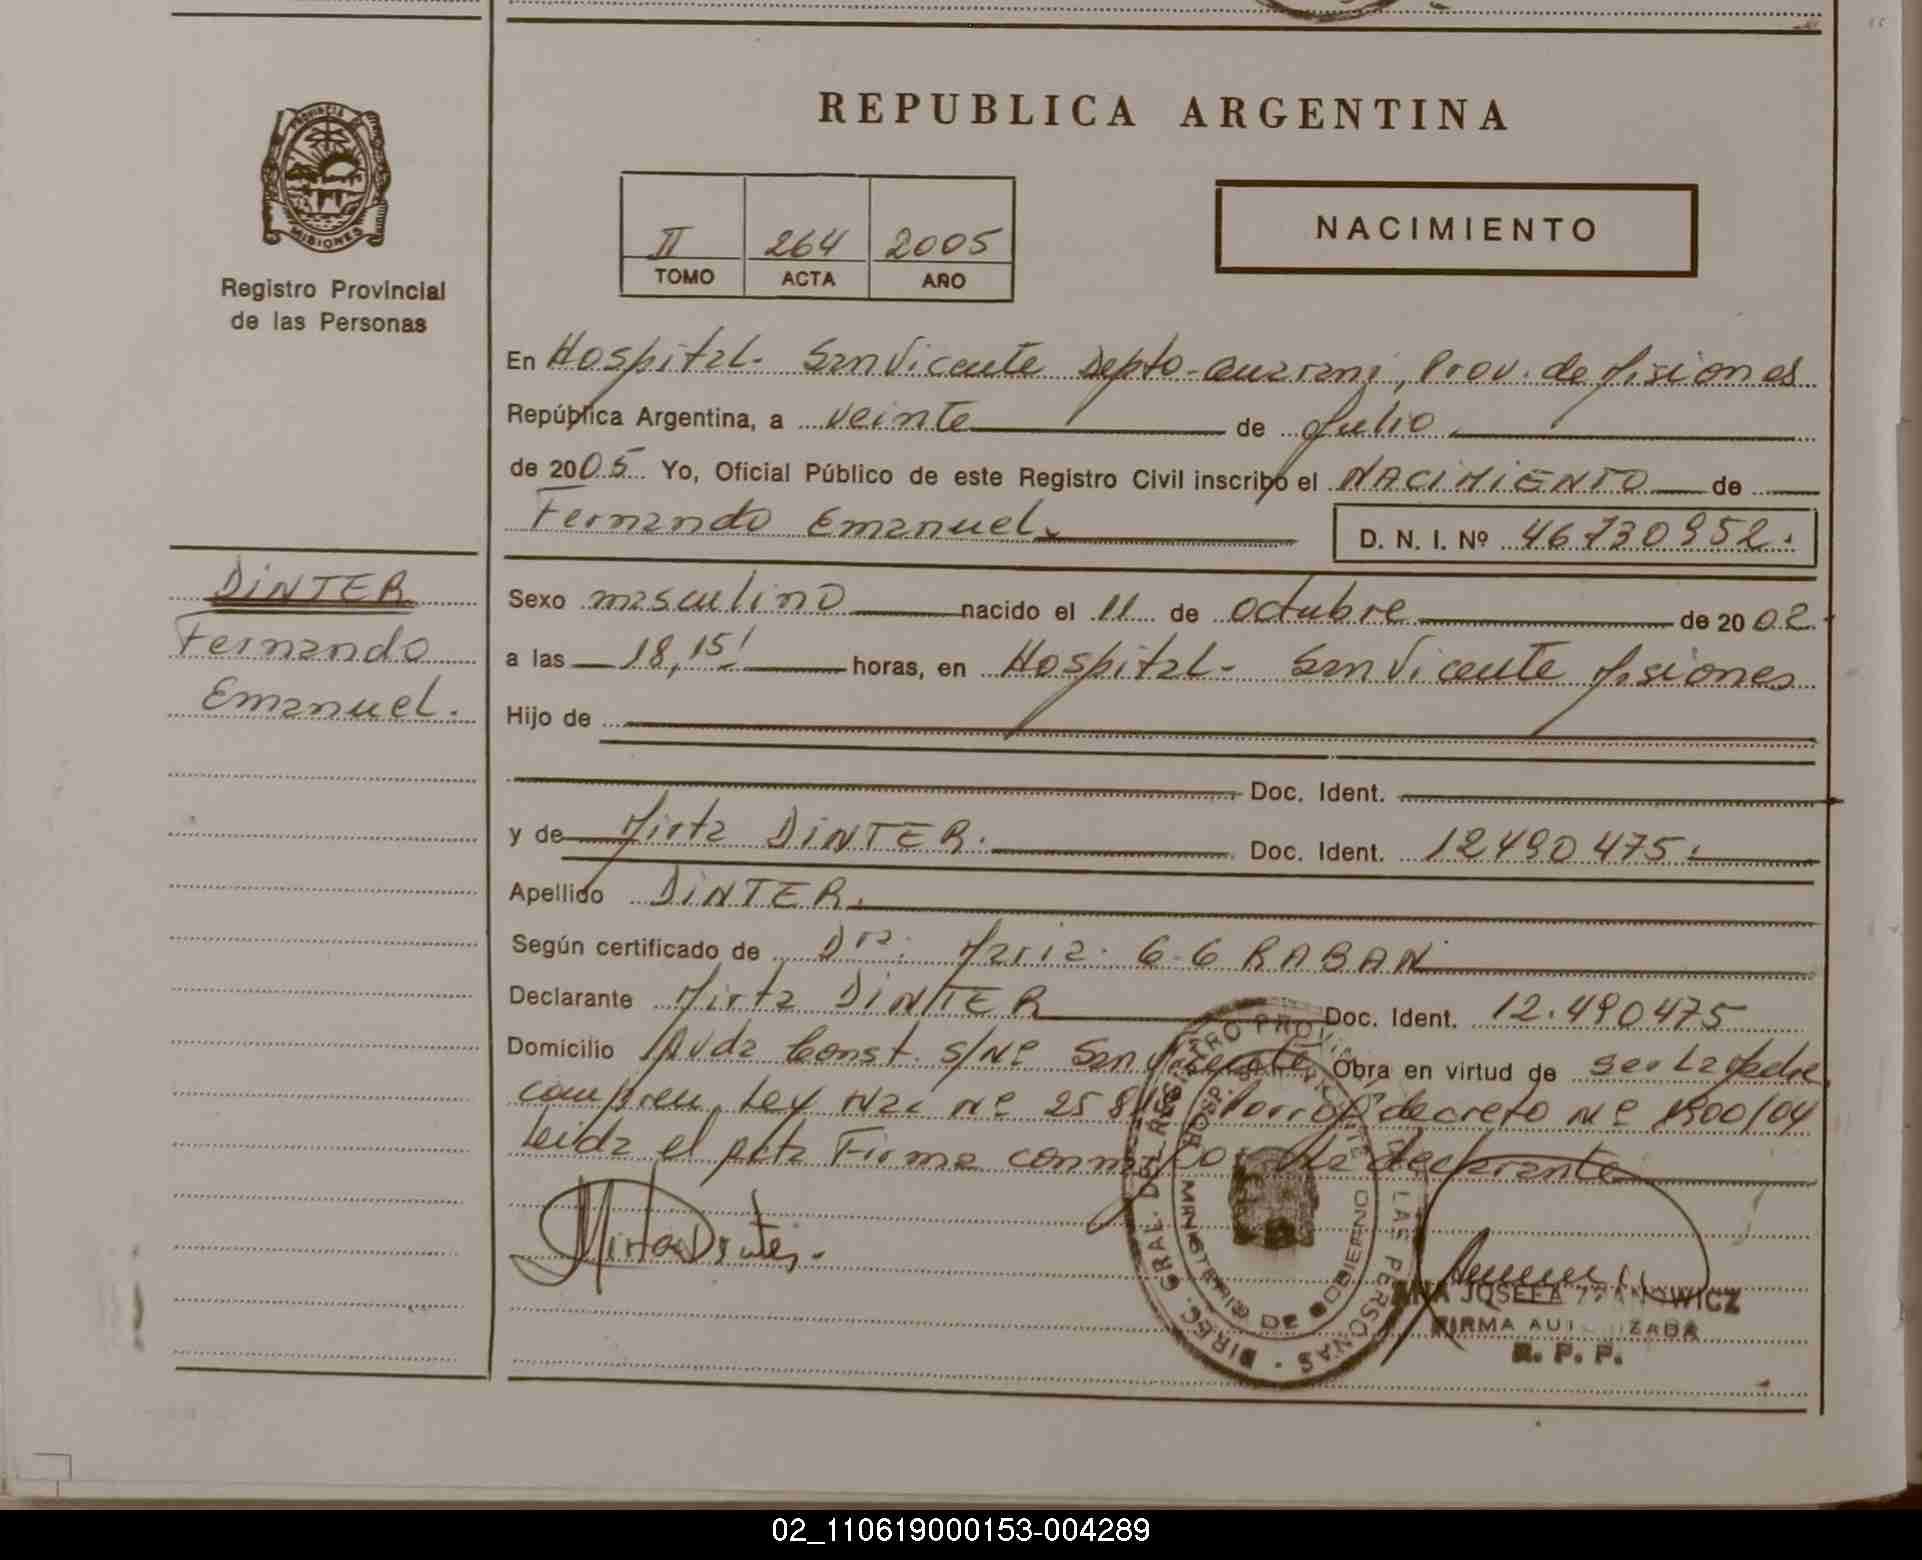 REPUBLICA ARGENTINA
PROVINCIA DE
MISIONES
Registro Provincial
de las Personas
II 264 2005
TOMO ACTA AÑO
NACIMIENTO
En Hospital- San Vicente Depto-Guarani, Prov. de Misiones
República Argentina, a veinte de Julio.
de 2005. Yo, Oficial Público de este Registro Civil inscribo el NACIMIENTO de
Fernando Emanuel. D. N. I. Nº 46730952.
DINTER
Fernando
Emanuel.
Sexo masculino nacido el 11 de octubre de 2002.
a las 18,15' horas, en Hospital- San Vicente Misiones
Hijo de
Doc. Ident.
y de Mirta DINTER. Doc. Ident. 12490475.
Apellido DINTER.
Según certificado de Dra. Maria G-G RABAN
Declarante Mirta DINTER Doc. Ident. 12.490475
Domicilio Avda Const. s/Nº San Vicente Obra en virtud de ser La Madre
Ley Nac Nº decreto Nº 1300/04
Leida el acta Firma conmigo La declarante
Mirta Dinter.
DIREC. GRAL. DEL REGISTRO PROVINCIAL DE LAS PERSONAS
MINISTERIO DE GOBIERNO
ANA JOSEFA
FIRMA AUTORIZADA
R. P. P.
02_110619000153-004289